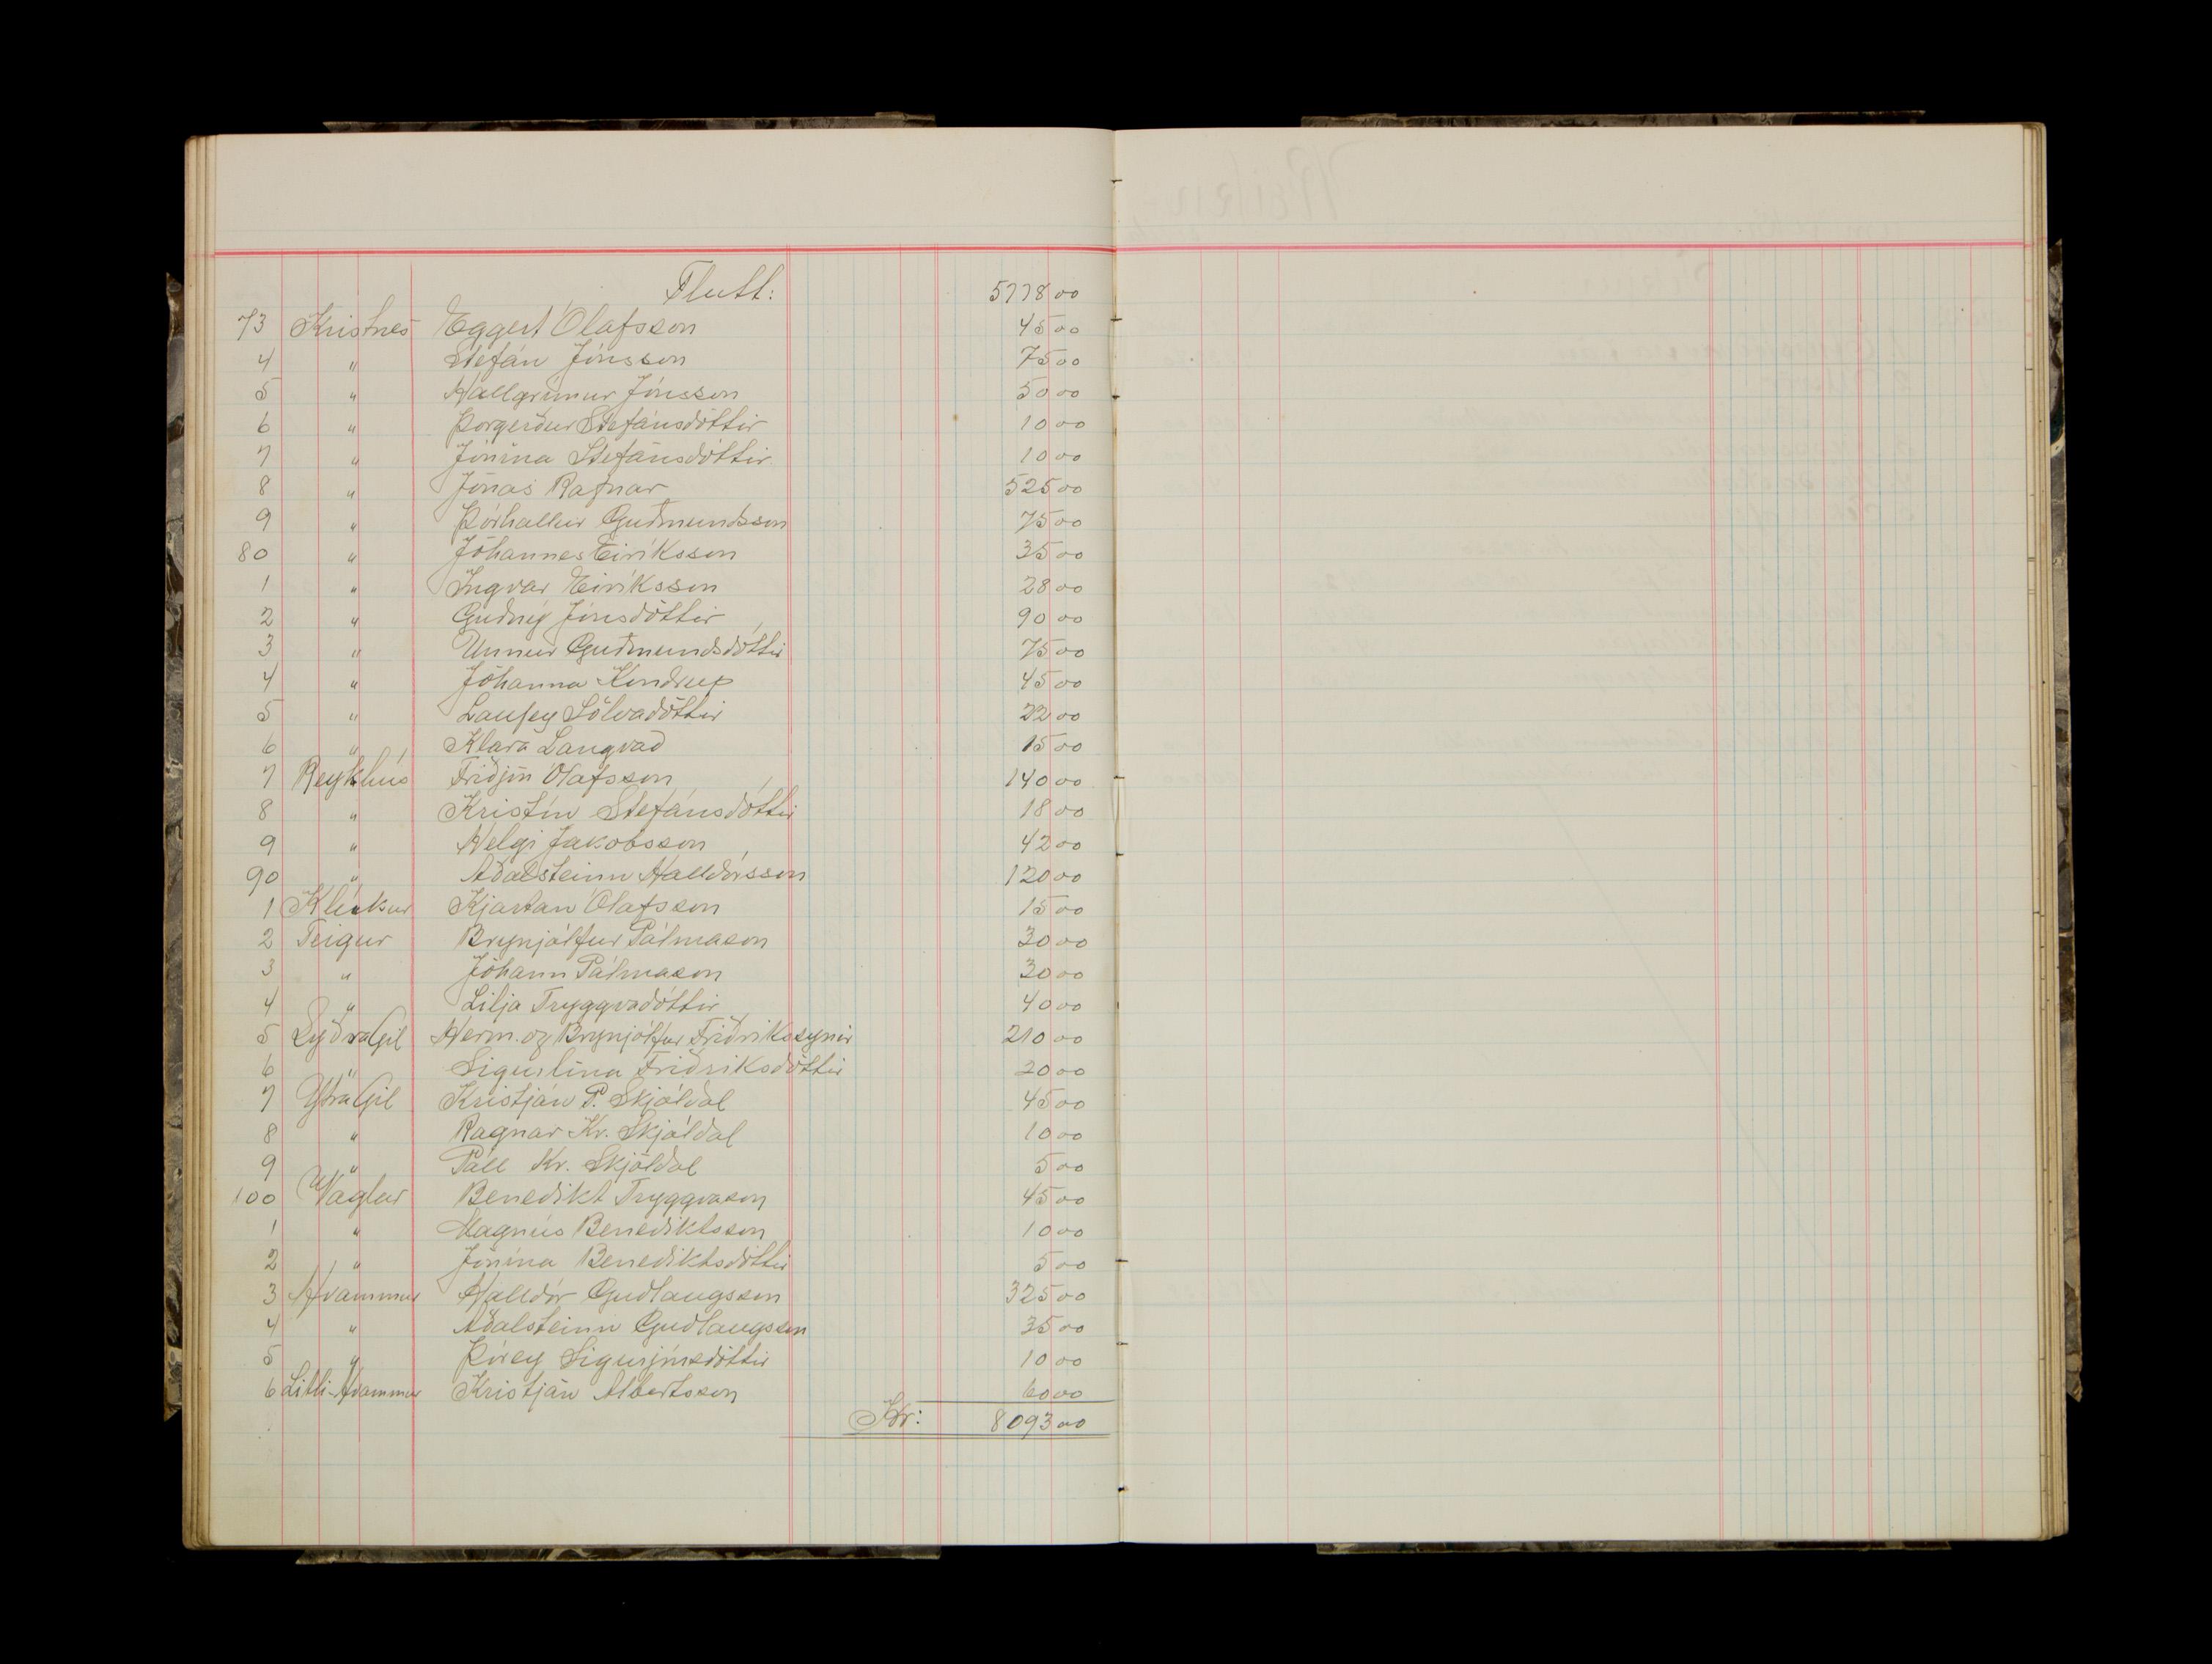 Flutt: 5778 00
73 Kristnes Eggert Ólafsson 45 00
4 " Stefán Jónsson 75 00
5 " Hallgrímur Jónsson 50 00
6 " Þorgerður Stefánsdóttir 10 00
7 " Jónína Stefánsdóttir 10 00
8 " Jónas Rafnar 525 00
9 " Þórhallur Guðmundsson 75 00
80 " Jóhannes Eiríksson 35 00
1 " Ingvar Eiríksson 28 00
2 " Guðný Jónsdóttir 90 00
3 " Unnur Guðmundsdóttir 75 00
4 " Jóhanna Kondrup 45 00
5 " Laufey Sölvadóttir 22 00
6 " Klara Langvad 15 00
7 Reykhús Friðjón Ólafsson 140 00
8 " Kristín Stefánsdóttir 18 00
9 " Helgi Jakobsson 42 00
90 " Aðalsteinn Halldórsson 120 00
1 Klúkur Kjartan Ólafsson 15 00
2 Teigur Brynjólfur Pálmason 30 00
3 " Jóhann Pálmason 30 00
4 " Lilja Tryggvadóttir 40 00
5 SyðraGil Herm. og Brynjólfur Friðrikssynir 210 00
6 " Sigurlína Friðriksdóttir 20 00
7 YtraGil Kristján P. Skjóldal 45 00
8 " Ragnar Kr. Skjóldal 10 00
9 " Páll Kr. Skjóldal 5 00
100 Vaglar Benedikt Tryggvason 45 00
1 " Magnús Benediktsson 10 00
2 " Jónína Benediktsdóttir 5 00
3 Hvammur Halldór Guðlaugsson 325 00
4 " Aðalsteinn Guðlaugsson 35 00
5 " Þórey Sigurjónsdóttir 10 00
6 Litli-Hvammur Kristján Albertsson 60 00
Kr: 8093 00